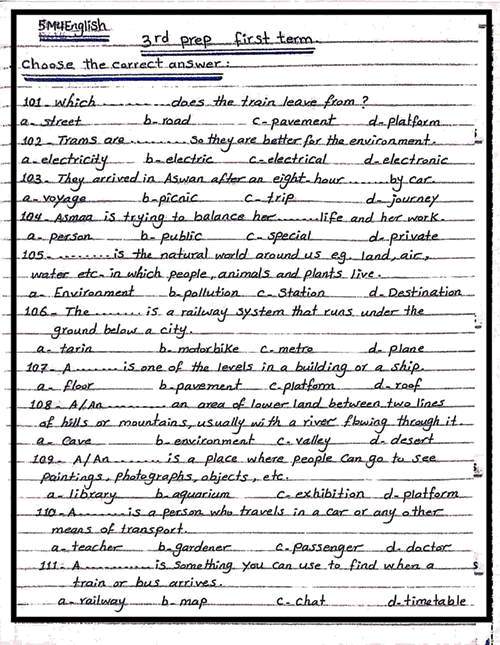 5M4English
3rd prep first term.
Choose the correct answer:
101- Which ............ does the train leave from?
a- street b- road c- pavement d- platform
102- Trams are .......... so they are better for the environment.
a- electricity b- electric c- electrical d- electronic
103- They arrived in Aswan after an eight-hour ...... by car.
a- voyage b- picnic c- trip d- journey
104- Asmaa is trying to balance her ....... life and her work.
a- person b- public c- special d- private
105- ......... is the natural world around us eg. land, air,
water etc- in which people, animals and plants live.
a- Environment b- pollution c- Station d- Destination
106- The ........ is a railway system that runs under the
ground below a city.
a- tarin b- motorbike c- metro d- plane
107- A ........ is one of the levels in a building or a ship.
a- floor b- pavement c- platform d- roof
108- A/An .......... an area of lower land between two lines
of hills or mountains, usually with a river flowing through it.
a- cave b- environment c- valley d- desert
109- A/An .......... is a place where people can go to see
paintings, photographs, objects, etc.
a- library b- aquarium c- exhibition d- platform
110- A .......... is a person who travels in a car or any other
means of transport.
a- teacher b- gardener c- passenger d- doctor
111- A ........... is something you can use to find when a
train or bus arrives.
a- railway b- map c- chat d- timetable